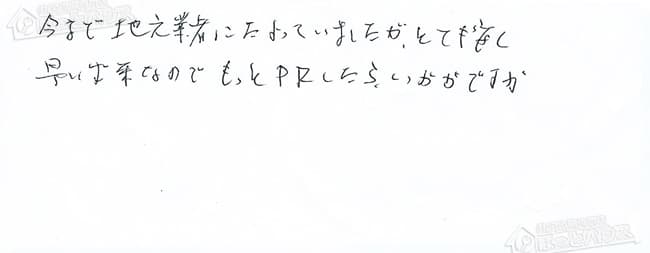 今まで地元業者にたよっていましたが、とても安く
早い出来なのでもっとPRしたらいかがですか